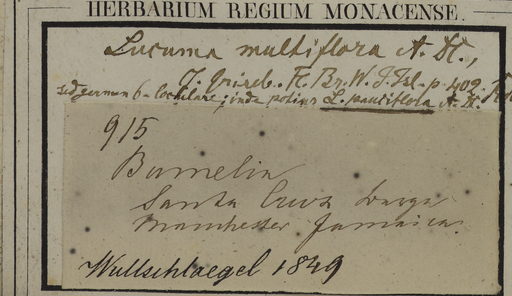 HERBARIUM REGIUM MONACENSE.
Lucuma multiflora A. DC.,
Griseb. Fl. Br. W. J. Isl. p. 402.
sed germen 6-loculare; inde potius L. pauciflora A. DC.
915
Bumelia
Santa Cruz
Manchester Jamaica.
Wullschlaegel 1849